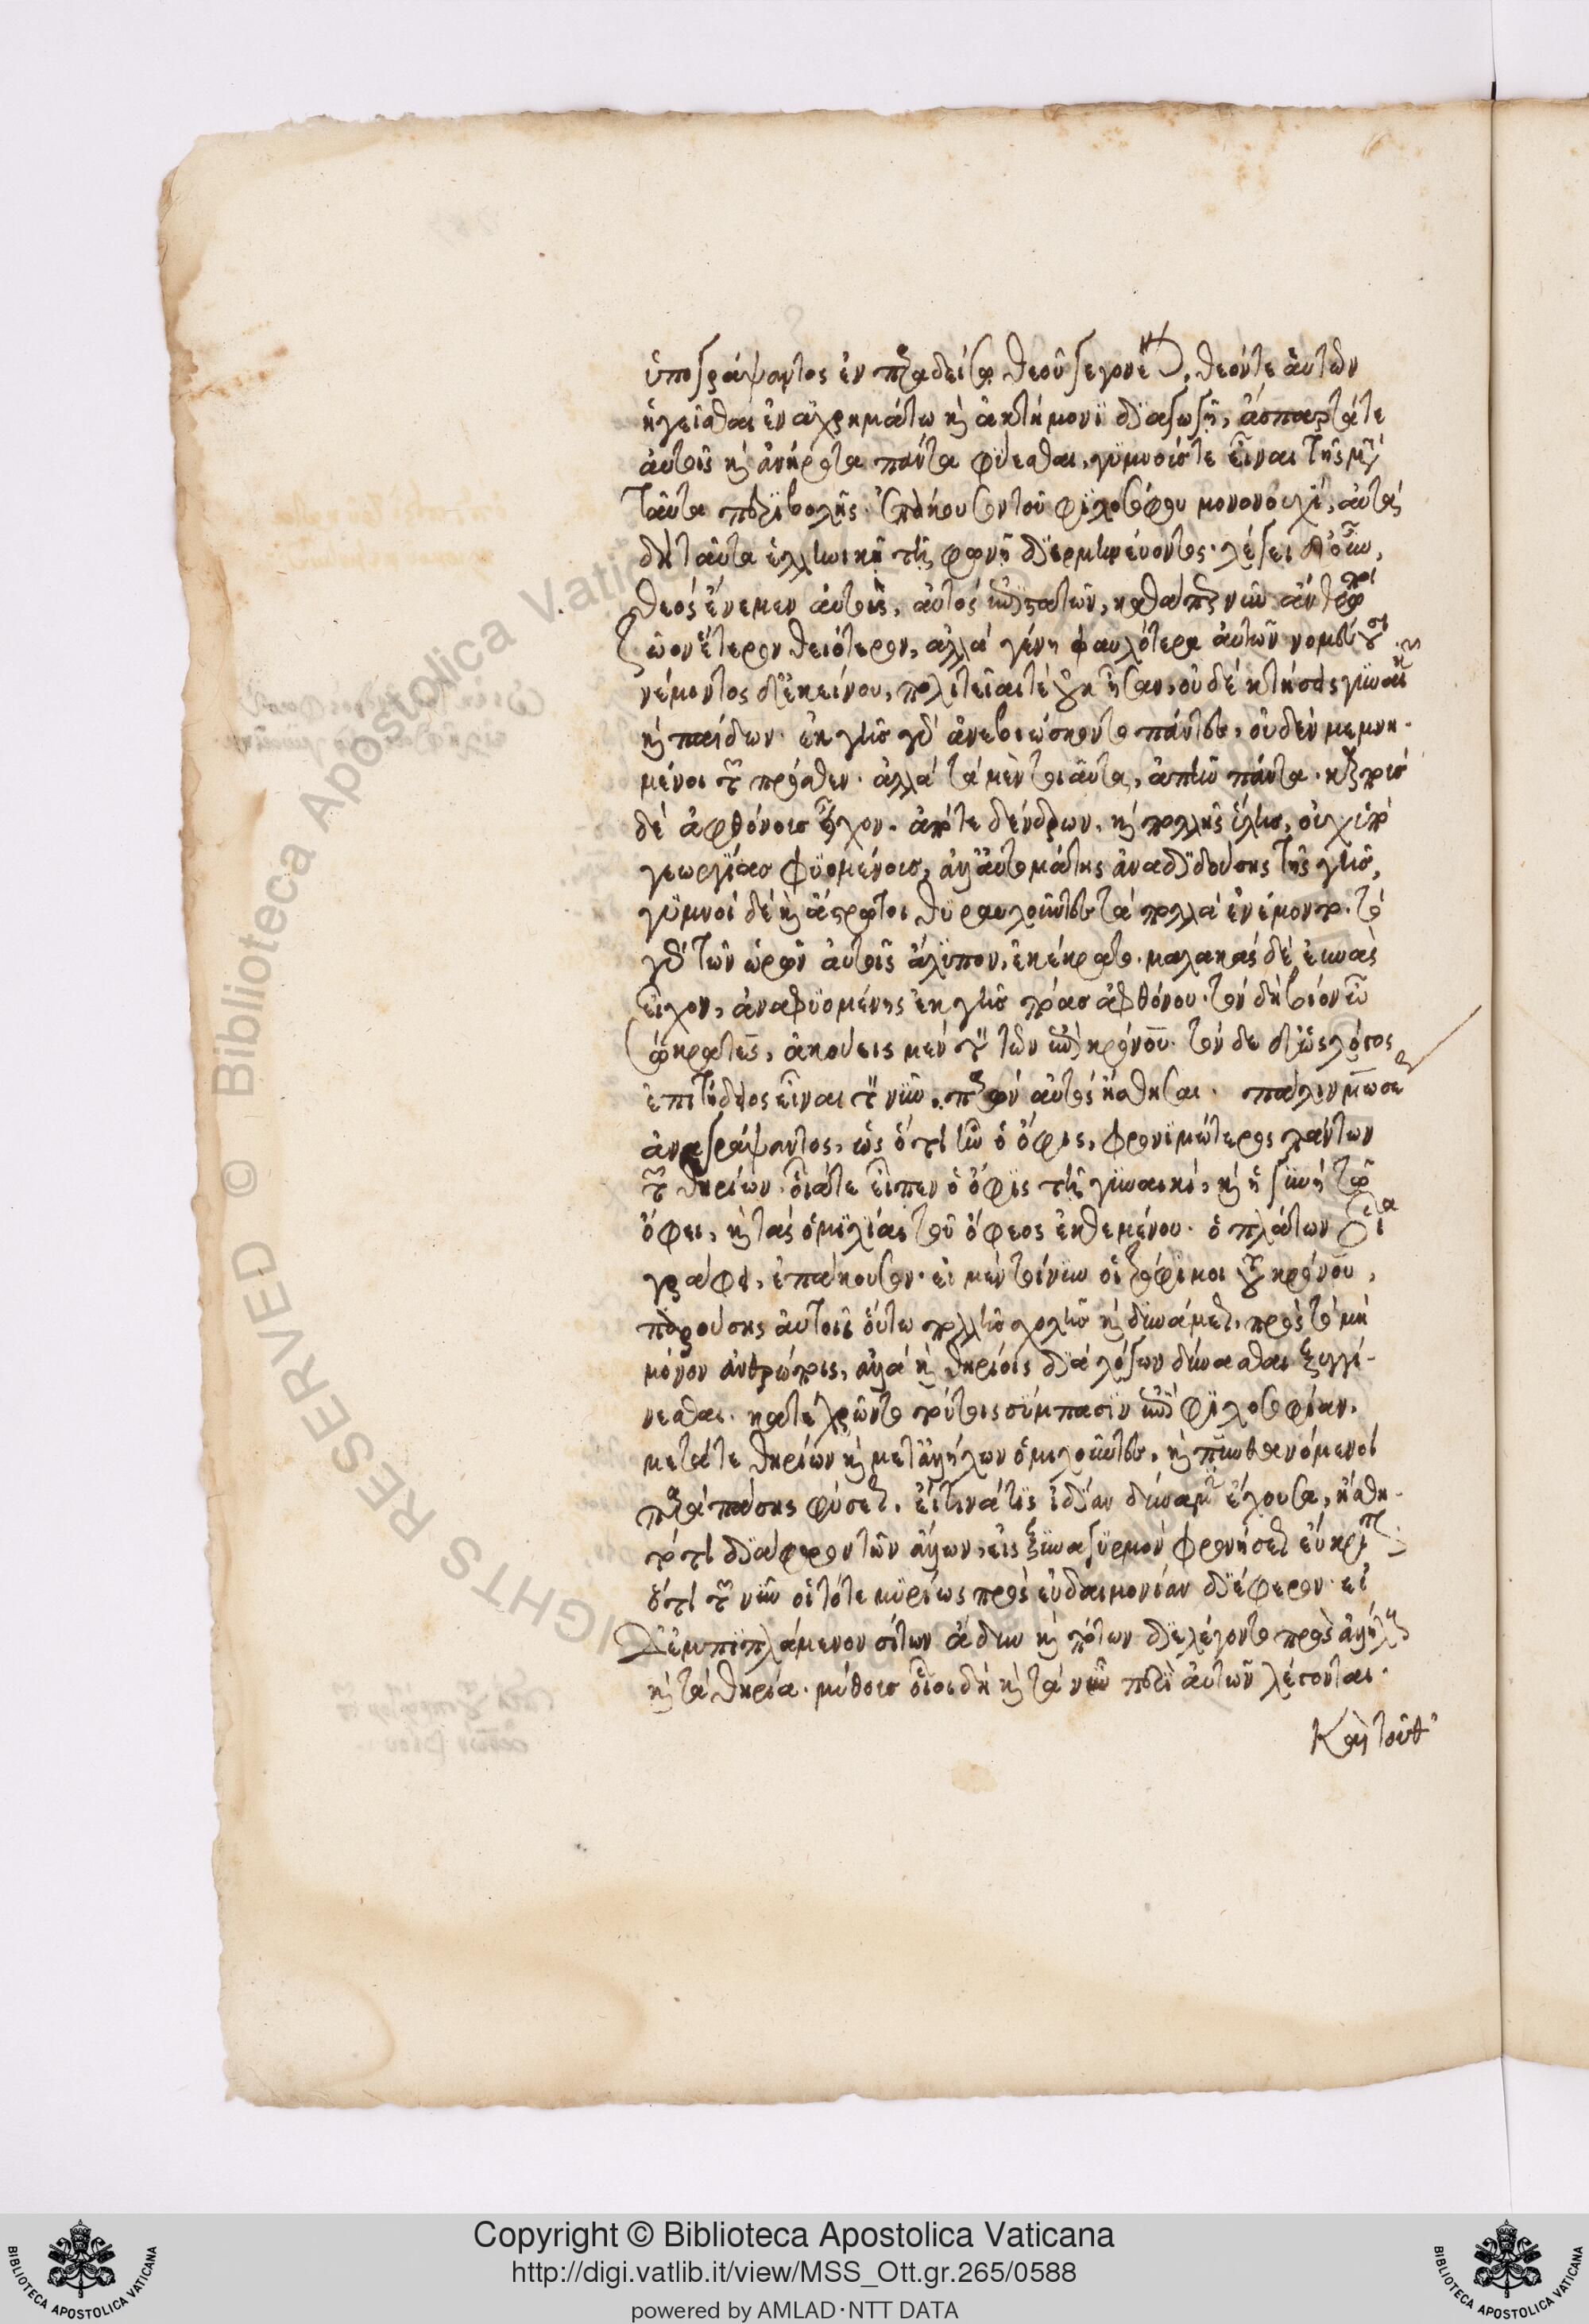 ὑπογράψαντος ἐν παραδείσῳ θεοῦ γεγονέναι, θεόν τε αὐτῶν
ἡγεῖσθαι ἐν ἀχρημάτῳ καὶ ἀκτήμονϊ διαγωγῇ, ἄσπαρτά τε
αὐτοῖς καὶ ἀνήροτα πάντα φύεσθαι, γυμνούς τε εἶναι τῆς μετὰ
ταῦτα περιβολῆς. ἐπάκουσον τοῦ φϊλοσόφου μονονουχὶ, αὐτὰ
δὴ ταῦτα ἑλληνικῇ τῇ φωνῇ διερμηνεύοντος. λέγει δ' οὖν,
θεὸς ἔνεμεν αὐτοὺς, αὐτὸς ἐπιστατῶν, καθάπερ νῦν ἄνθρωποι
ζῶον ἕτερον θειότερον, ἀλλὰ γένη φαυλότερα αὐτῶν νομεύουσι
νέμοντος δ' ἐκείνου, πολιτεῖαί τε οὐκ ἦσαν, οὐδὲ κτήσεις γυναικῶν
καὶ παίδων. ἐκ γῆς γὰρ ἀνεβιώσκοντο πάντες, οὐδὲν μεμνη-
μένοι τῶν πρόσθεν. ἀλλὰ τὰ μὲν τοιαῦτα, ἀπῆν πάντα. καρποὺς
δὲ ἀφθόνους εἶχον. ἀπό τε δένδρων, καὶ πολλῆς ὕλης, οὐχ ὑπὸ
γεωργίας φϋομένους, ἀλλ' αὐτομάτης ἀναδιδούσης τῆς γῆς,
γυμνοὶ δὲ καὶ ἄστρωτοι θυραυλοῦντες τὰ πολλὰ ἐνέμοντο. τὸ
γὰρ τῶν ὡρῶν αὐτοῖς ἄλυπον, ἐκέκρατο. μαλακὰς δὲ εὐνὰς
εἶχον, ἀναφϋομένης ἐκ γῆς πόας ἀφθόνου. τὸν δὴ βίον ὦ
σώκρατες, ἀκούεις μὲν τὸν τῶν ἐπὶ κρόνου. τὸν δε δ' ὡς λόγος
ἐπὶ διὸς εἶναι τὸν νῦν, παρὼν αὐτὸς ᾔσθησαι. πάλιν μωσέως
ἀναγράψαντος, ὡς ὅτι ἦν ὁ ὄφις, φρονιμώτερος πάντων
τῶν θηρίων. οἷά τε εἶπεν ὁ ὄφϊς τῇ γυναικὶ, καὶ ἡ γυνὴ τῷ
ὄφει, καὶ τὰς ὁμϊλίας τοῦ ὄφεος ἐκθεμένου. ὁ πλάτων οἷα
γράφει, ἐπάκουσον. εἰ μὲν τοίνυν οἱ τρόφιμοι τοῦ κρόνου,
παρούσης αὐτοῖς οὕτω πολλῆς σχολῆς καὶ δυνάμεως, πρὸς τὸ μὴ
μόνον ἀνθρώποις, ἀλλὰ καὶ θηρίοις διὰ λόγων δύνασθαι ξυγγί-
νεσθαι. κατεχρῶντο τούτοις σύμπασϊν ἐπὶ φϊλοσοφίαν.
μετά τε θηρίων καὶ μετ' ἀλλήλων ὁμιλοῦντες, καὶ πυνθανόμενοι
παρὰ πάσης φύσεως. εἴ τινά τις ἰδίαν δύναμιν ἔχουσα, ᾔσθη-
τό τι διάφορον τῶν ἄλλων, εἰς ξυναγυρμὸν φρονήσεως εὔκριτον
ὅτι τῶν νῦν οἱ τότε μυρίως πρὸς εὐδαιμονίαν διέφερον. εἰ
δ' ἐμπιπλάμενοι σίτων ἄδην καὶ πότων διελέγοντο πρὸς ἀλλήλους
καὶ τὰ θηρία. μύθους οἷοι δὴ καὶ τὰ νῦν περὶ αὐτῶν λέγονται.
Καὶ τοῦθ'
Copyright © Biblioteca Apostolica Vaticana
http://digi.vatlib.it/view/MSS_Ott.gr.265/0588
powered by AMLAD·NTT DATA